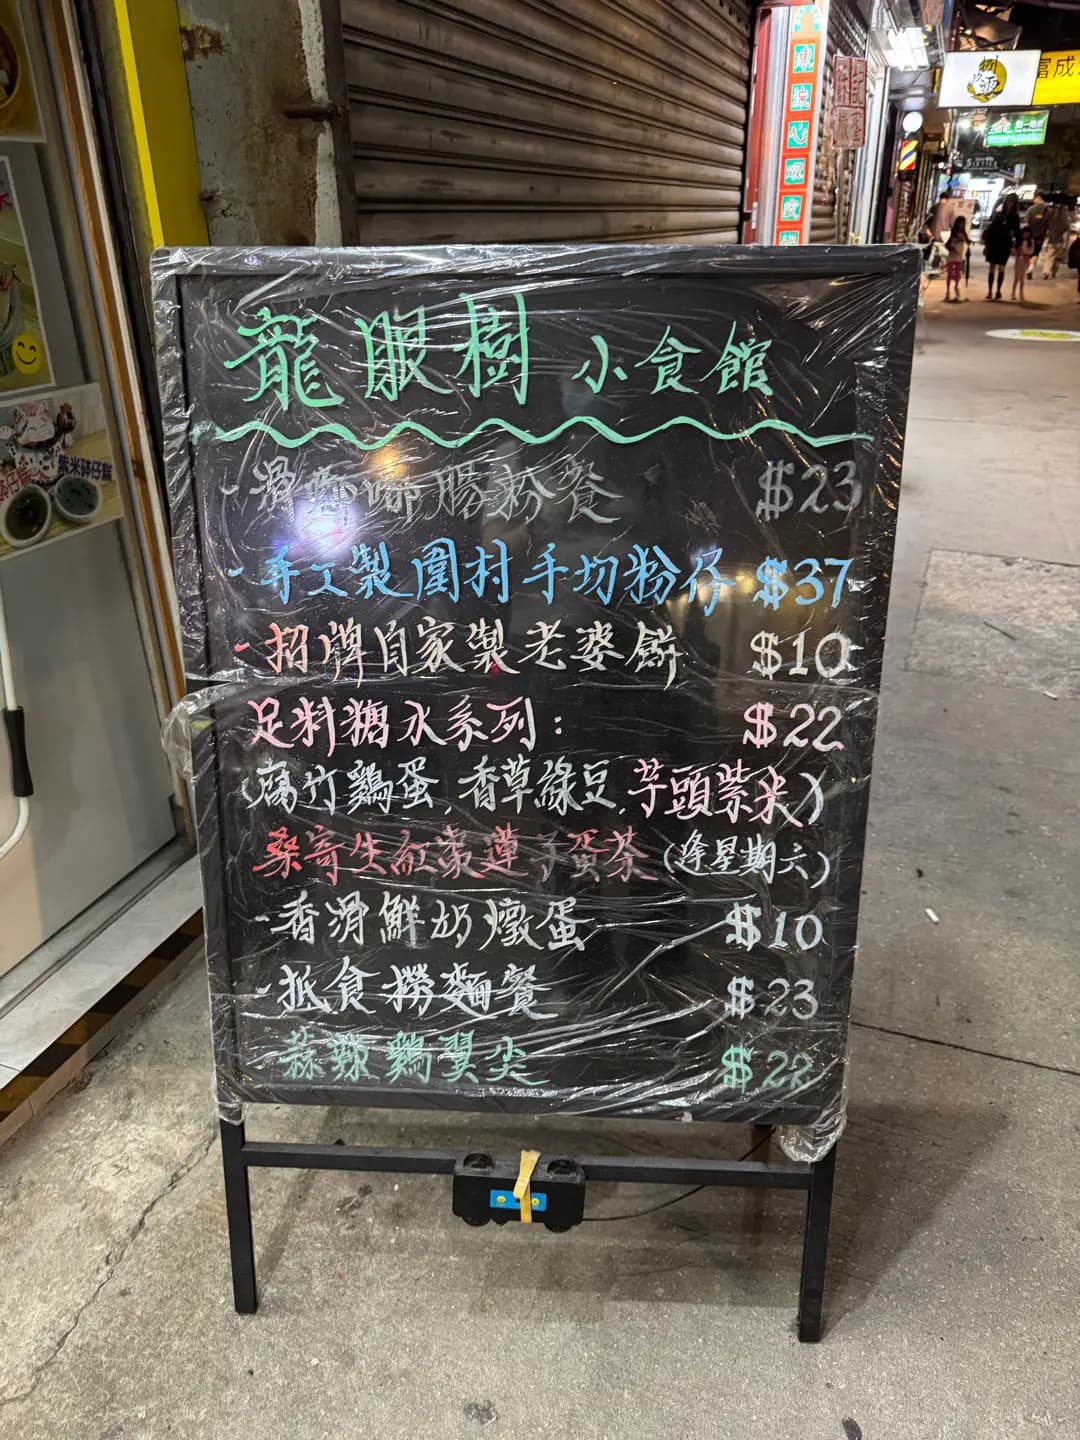 龍眼樹 小食館
- 滑嘟嘟腸粉餐 $23
- 手工製圍村手切粉仔 $37
- 招牌自家製老婆餅 $10
足料糖水系列： $22
(腐竹鷄蛋, 香草綠豆, 芋頭紫米)
桑寄生紅棗蓮子蛋茶 (逢星期六)
- 香滑鮮奶燉蛋 $10
- 抵食撈麵餐 $23
蒜辣鷄翼尖 $22
紫米砵仔糕
富成